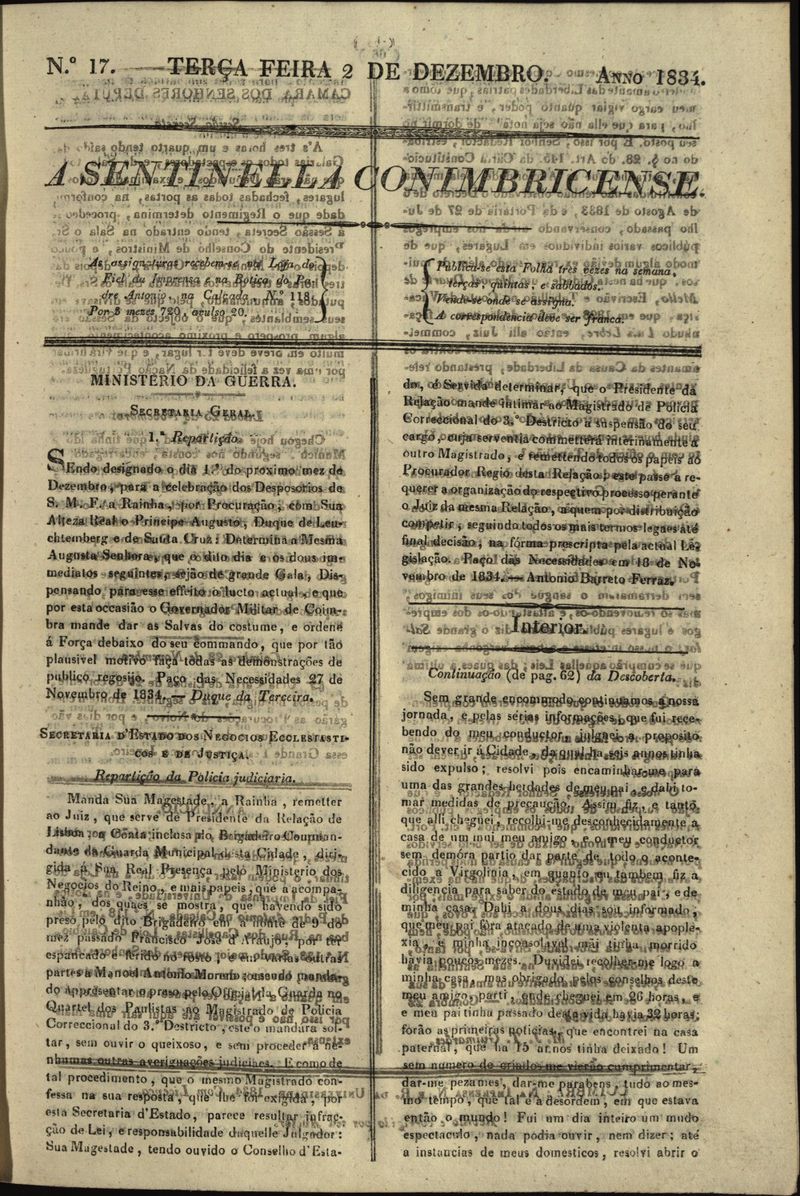 N.º 17. TERÇA FEIRA 2 DE DEZEMBRO. ANNO 1834.
A SENTINELLA CONIMBRICENSE.
As assignaturas recebem-se na Loja do
Fiel da Imprensa, e na Botica do Pa-
dre Antonio, na Calçada N.º 118
Por 3 mezes 720, avulso 20.
Publica-se esta Folha tres vezes na semana,
terças, quintas, e sabbados.
Vende-se onde se assigna.
A correspondencia deve ser franca.
MINISTERIO DA GUERRA.
SECRETARIA GERAL.
1.ª Repartição.
SEndo designado o dia 1.º do proximo mez de
Dezembro, para a celebração dos Desposorios de
S. M. F. a Rainha, por Procuração, com Sua
Alteza Real o Principe Augusto, Duque de Leu-
chtemberg e de Santa Cruz: Determina a Mesma
Augusta Senhora, que o dito dia e os dous im-
mediatos seguintes, sejão de grande Gala, Dis-
pensando para esse effeito o lucto actual, e que
por esta occasião o Governador Militar de Coim-
bra mande dar as Salvas do costume, e ordene
á Força debaixo do seu commando, que por tão
plausivel motivo faça todas as demonstrações de
publico regosijo. Paço das Necessidades 27 de
Novembro de 1834. — Duque da Terceira.
SECRETARIA D'ESTADO DOS NEGOCIOS ECCLESIASTI-
COS E DE JUSTIÇA.
Repartição da Policia judiciaria.
Manda Sua Magestade, a Rainha, remetter
ao Juiz, que serve de Presidente da Relação de
Lisboa, a Conta inclosa do Brigadeiro Comman-
dante da Guarda Municipal desta Cidade, diri-
gida á Sua Real Presença pelo Ministerio dos
Negocios do Reino, e mais papeis, que a acompa-
nhão, dos quaes se mostra, que havendo sido
preso pelo dito Brigadeiro em a noute de 9 do
mez passado Francisco José d'Araujo, por ter
espancado e ferido no rosto, e em varias outras
partes a Manoel Antonio Moreira, e sendo manda-
do appresentar o preso pelo Official da Guarda no
Quartel dos Paulistas ao Magistrado de Policia
Correccional do 3.º Destricto, este o mandára sol-
tar, sem ouvir o queixoso, e sem proceder a ne-
nhumas outras averiguações judiciaes. E como de
tal procedimento, que o mesmo Magistrado con-
fessa na sua resposta, que lhe foi exigida, por
esta Secretaria d'Estado, parece resultar infrac-
ção de Lei, e responsabilidade daquelle Julgador:
Sua Magestade, tendo ouvido o Conselho d'Esta-
do, é Servida determinar, que o Presidente da
Relação mande intimar ao Magistrado de Policia
Correccional do 3.º Destricto a suspensão do seu
cargo, cuja serventia commetterá interinamente a
outro Magistrado, e remettendo todos os papeis ao
Procurador Regio desta Relação, este passe a re-
querer a organização do respectivo processo perante
o Juiz da mesma Relação, a quem por distribuição
competir, seguindo todos os mais termos legaes até
final decisão, na fórma prescripta pela actual Le-
gislação. Paço das Necessidades em 18 de No-
vembro de 1834. — Antonio Barreto Ferraz.
Interior.
Continuação (de pag. 62) da Descoberta.
Sem grande encommodo continuamos a nossa
jornada, e pelas sérias informações, que fui rece-
bendo do meu conductor, julguei a proposito
não dever ir á Cidade, da qual ha seis annos tinha
sido expulso; resolvi pois encaminhar-me para
uma das grandes herdades de meu pai, e dahi to-
mar medidas de precaução. Assim fiz, e tanto
que alli cheguei, recolhi-me desconhecidamente a
casa de um mui meu amigo, e o meu conductor
sem demóra partio dar parte de todo o aconte-
cido a Virgolinia, em quanto eu tambem fiz a
diligencia para saber do estado de meu pai, e de
minha casa. Dahi a dous dias sou informado,
que meu pai fôra atacado de uma violenta apople-
xia, e minha inconsolavel mãi tinha morrido
havia poucos mezes. Duvidei recolher-me logo a
minha casa, mas obrigado pelos conselhos deste
meu amigo, parti, onde cheguei em 26 horas, e
e meu pai tinha passado desta vida havia 32 horas;
forão as primeiras noticias, que encontrei na casa
paternal, que ha 15 annos tinha deixado! Um
sem numero de criados me vierão cumprimentar,
dar-me pezames, dar-me parabens, tudo ao mes-
mo tempo, que tal é a desordem, em que estava
então o mundo! Fui um dia inteiro um mudo
espectaculo, nada podia ouvir, nem dizer; até
a instancias de meus domesticos, resolvi abrir o